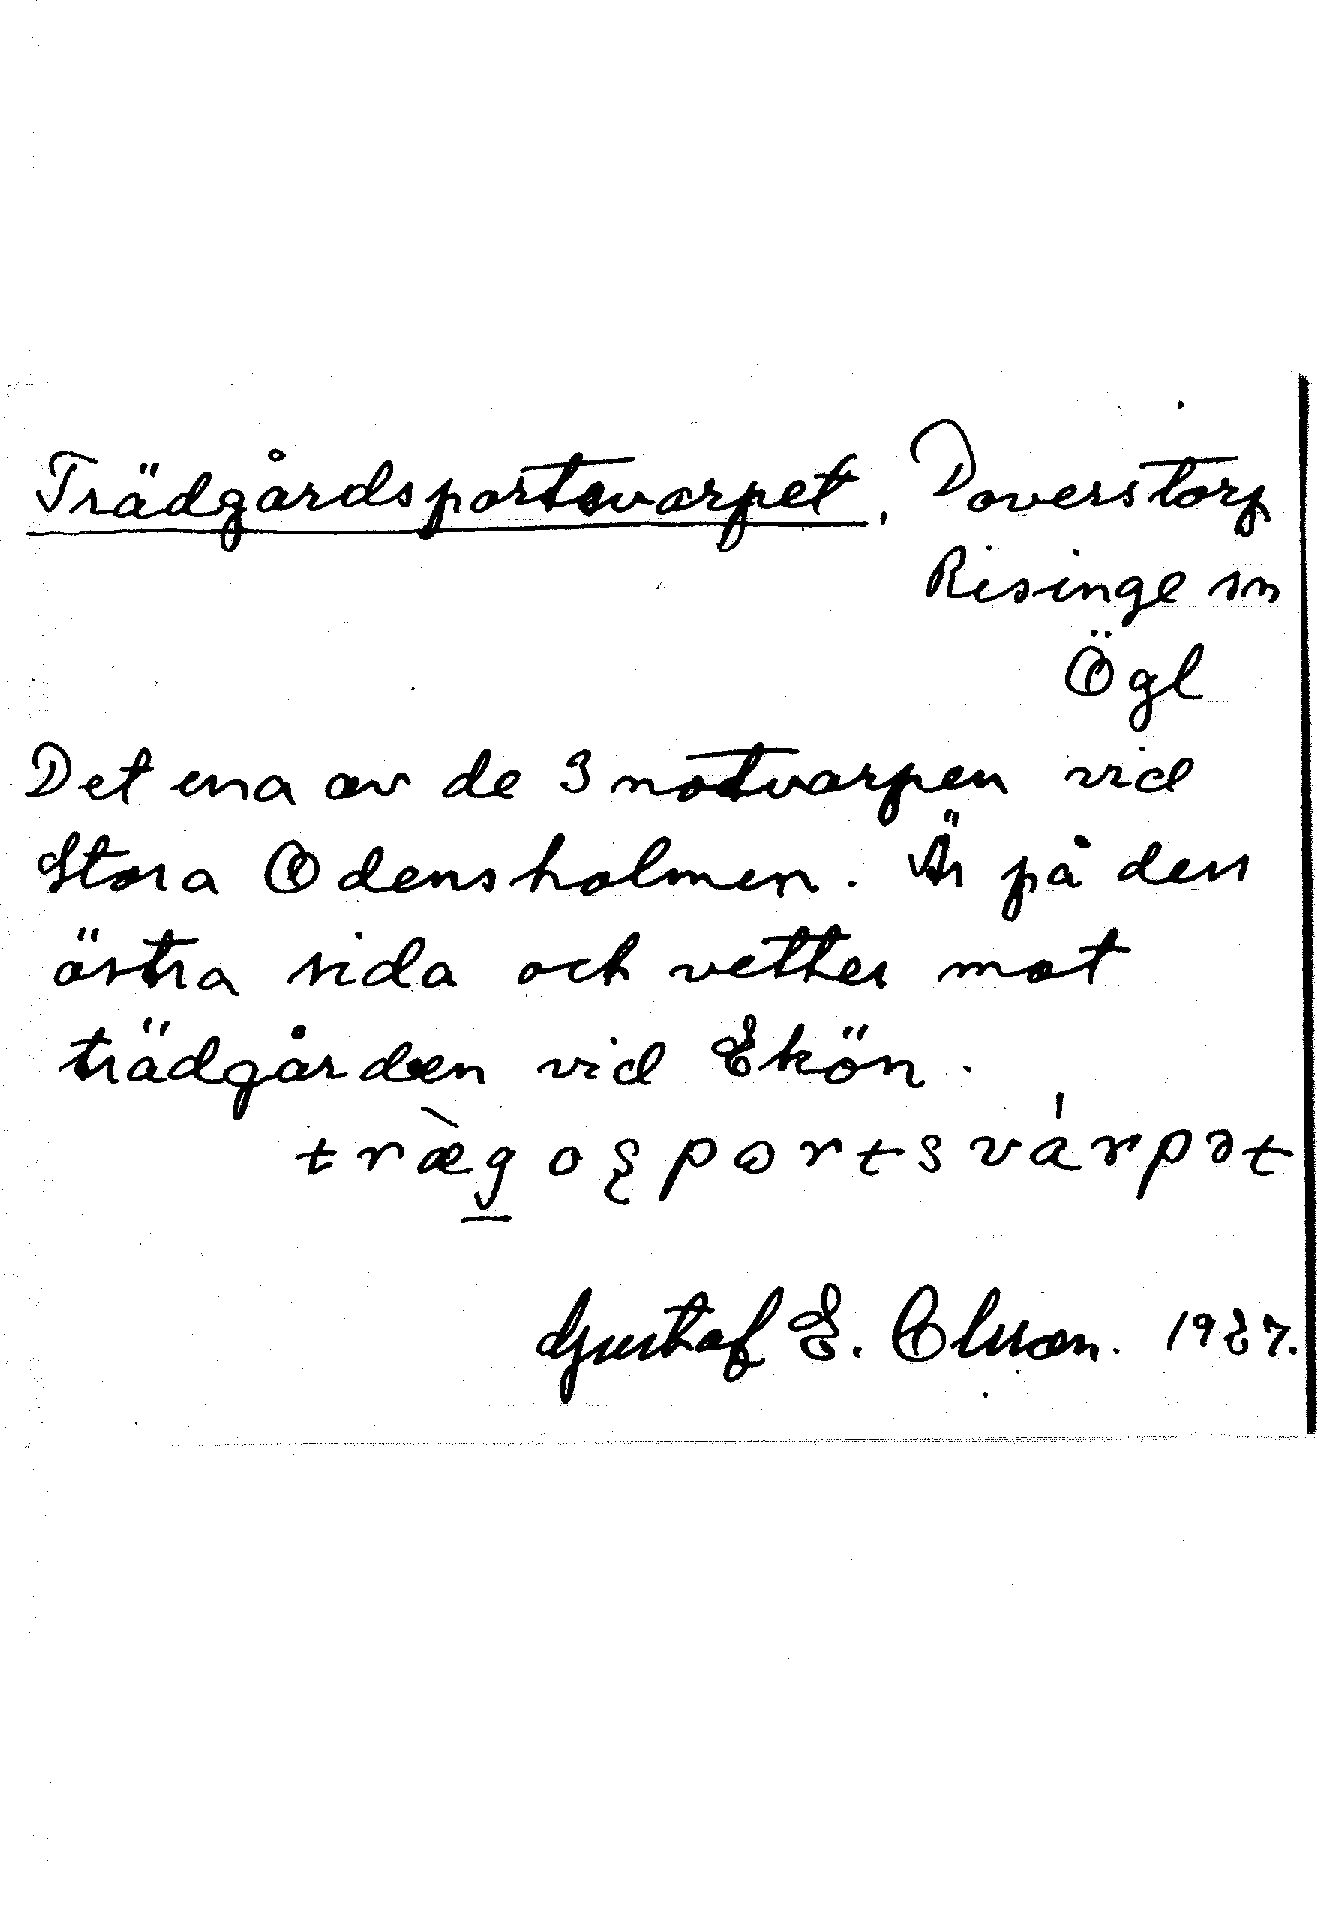 Trädgårdsportsvarpet, Doverstorp
Risinge sn
Ögl
Det ena av de 3 notvarpen vid
Stora Odensholmen. Är på den
östra sida och vetter mot
trädgården vid Ekön.
træ̀go̱ʂpɷrtsvárpət
Gustaf E. Olsson. 1937.